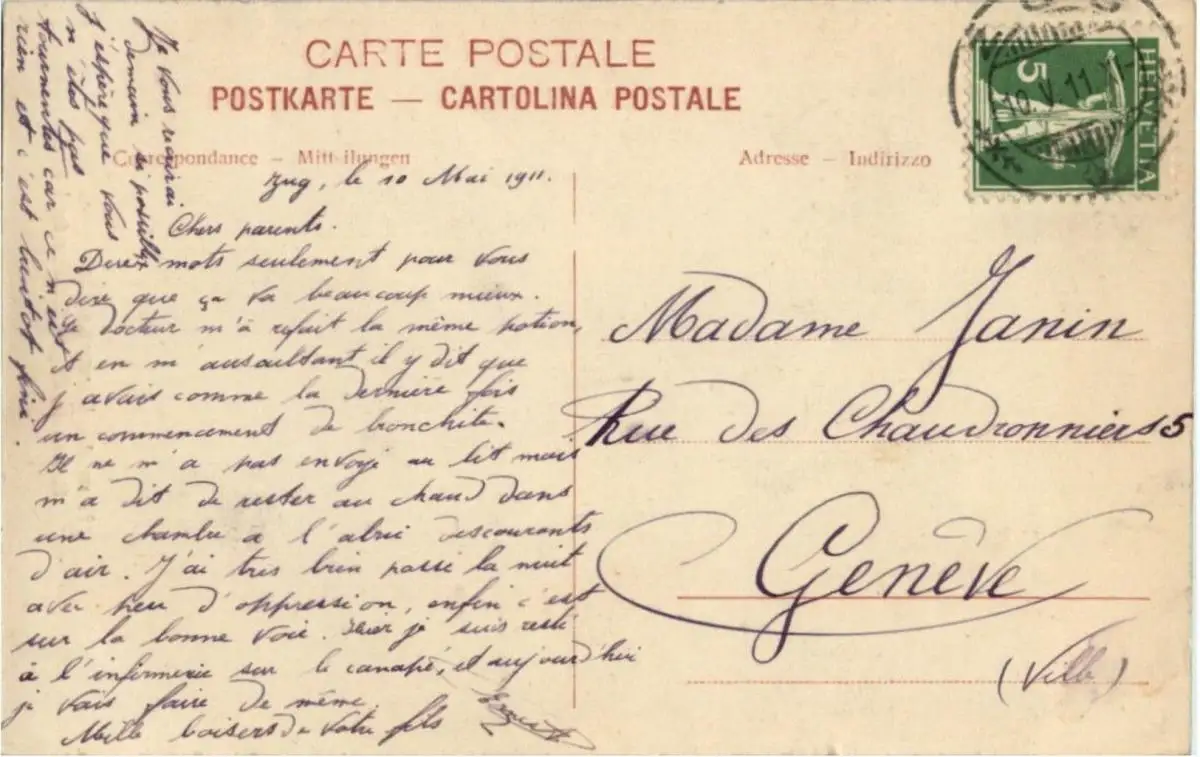 CARTE POSTALE
POSTKARTE — CARTOLINA POSTALE
Correspondance – Mitteilungen
Adresse – Indirizzo
HELVETIA
5
10.V.11
Zug, le 10 Mai 1911.
Chers parents.
Deux mots seulement pour vous
dire que ça va beaucoup mieux.
Le docteur m'a refait la même potion,
et en m'auscultant il y dit que
j'avais comme la dernière fois
un commencement de bronchite.
Il ne m'a pas envoyé au lit mais
m'a dit de rester au chaud dans
une chambre a l'abri des courants
d'air. J'ai très bien passé la nuit
avec peu d'oppression, enfin c'est
sur la bonne voie. Hier je suis resté
à l'infirmerie sur le canapé, et aujourd'hui
je vais faire de même.
Mille baisers de votre fils
Ernest
Je vous
demain si possible
j'espère que vous
n'êtes pas
tourmentés car ce n'est
rien et c'est bientot fini.
Madame Janin
Rue des Chaudronniers 5
Genève
(Ville)